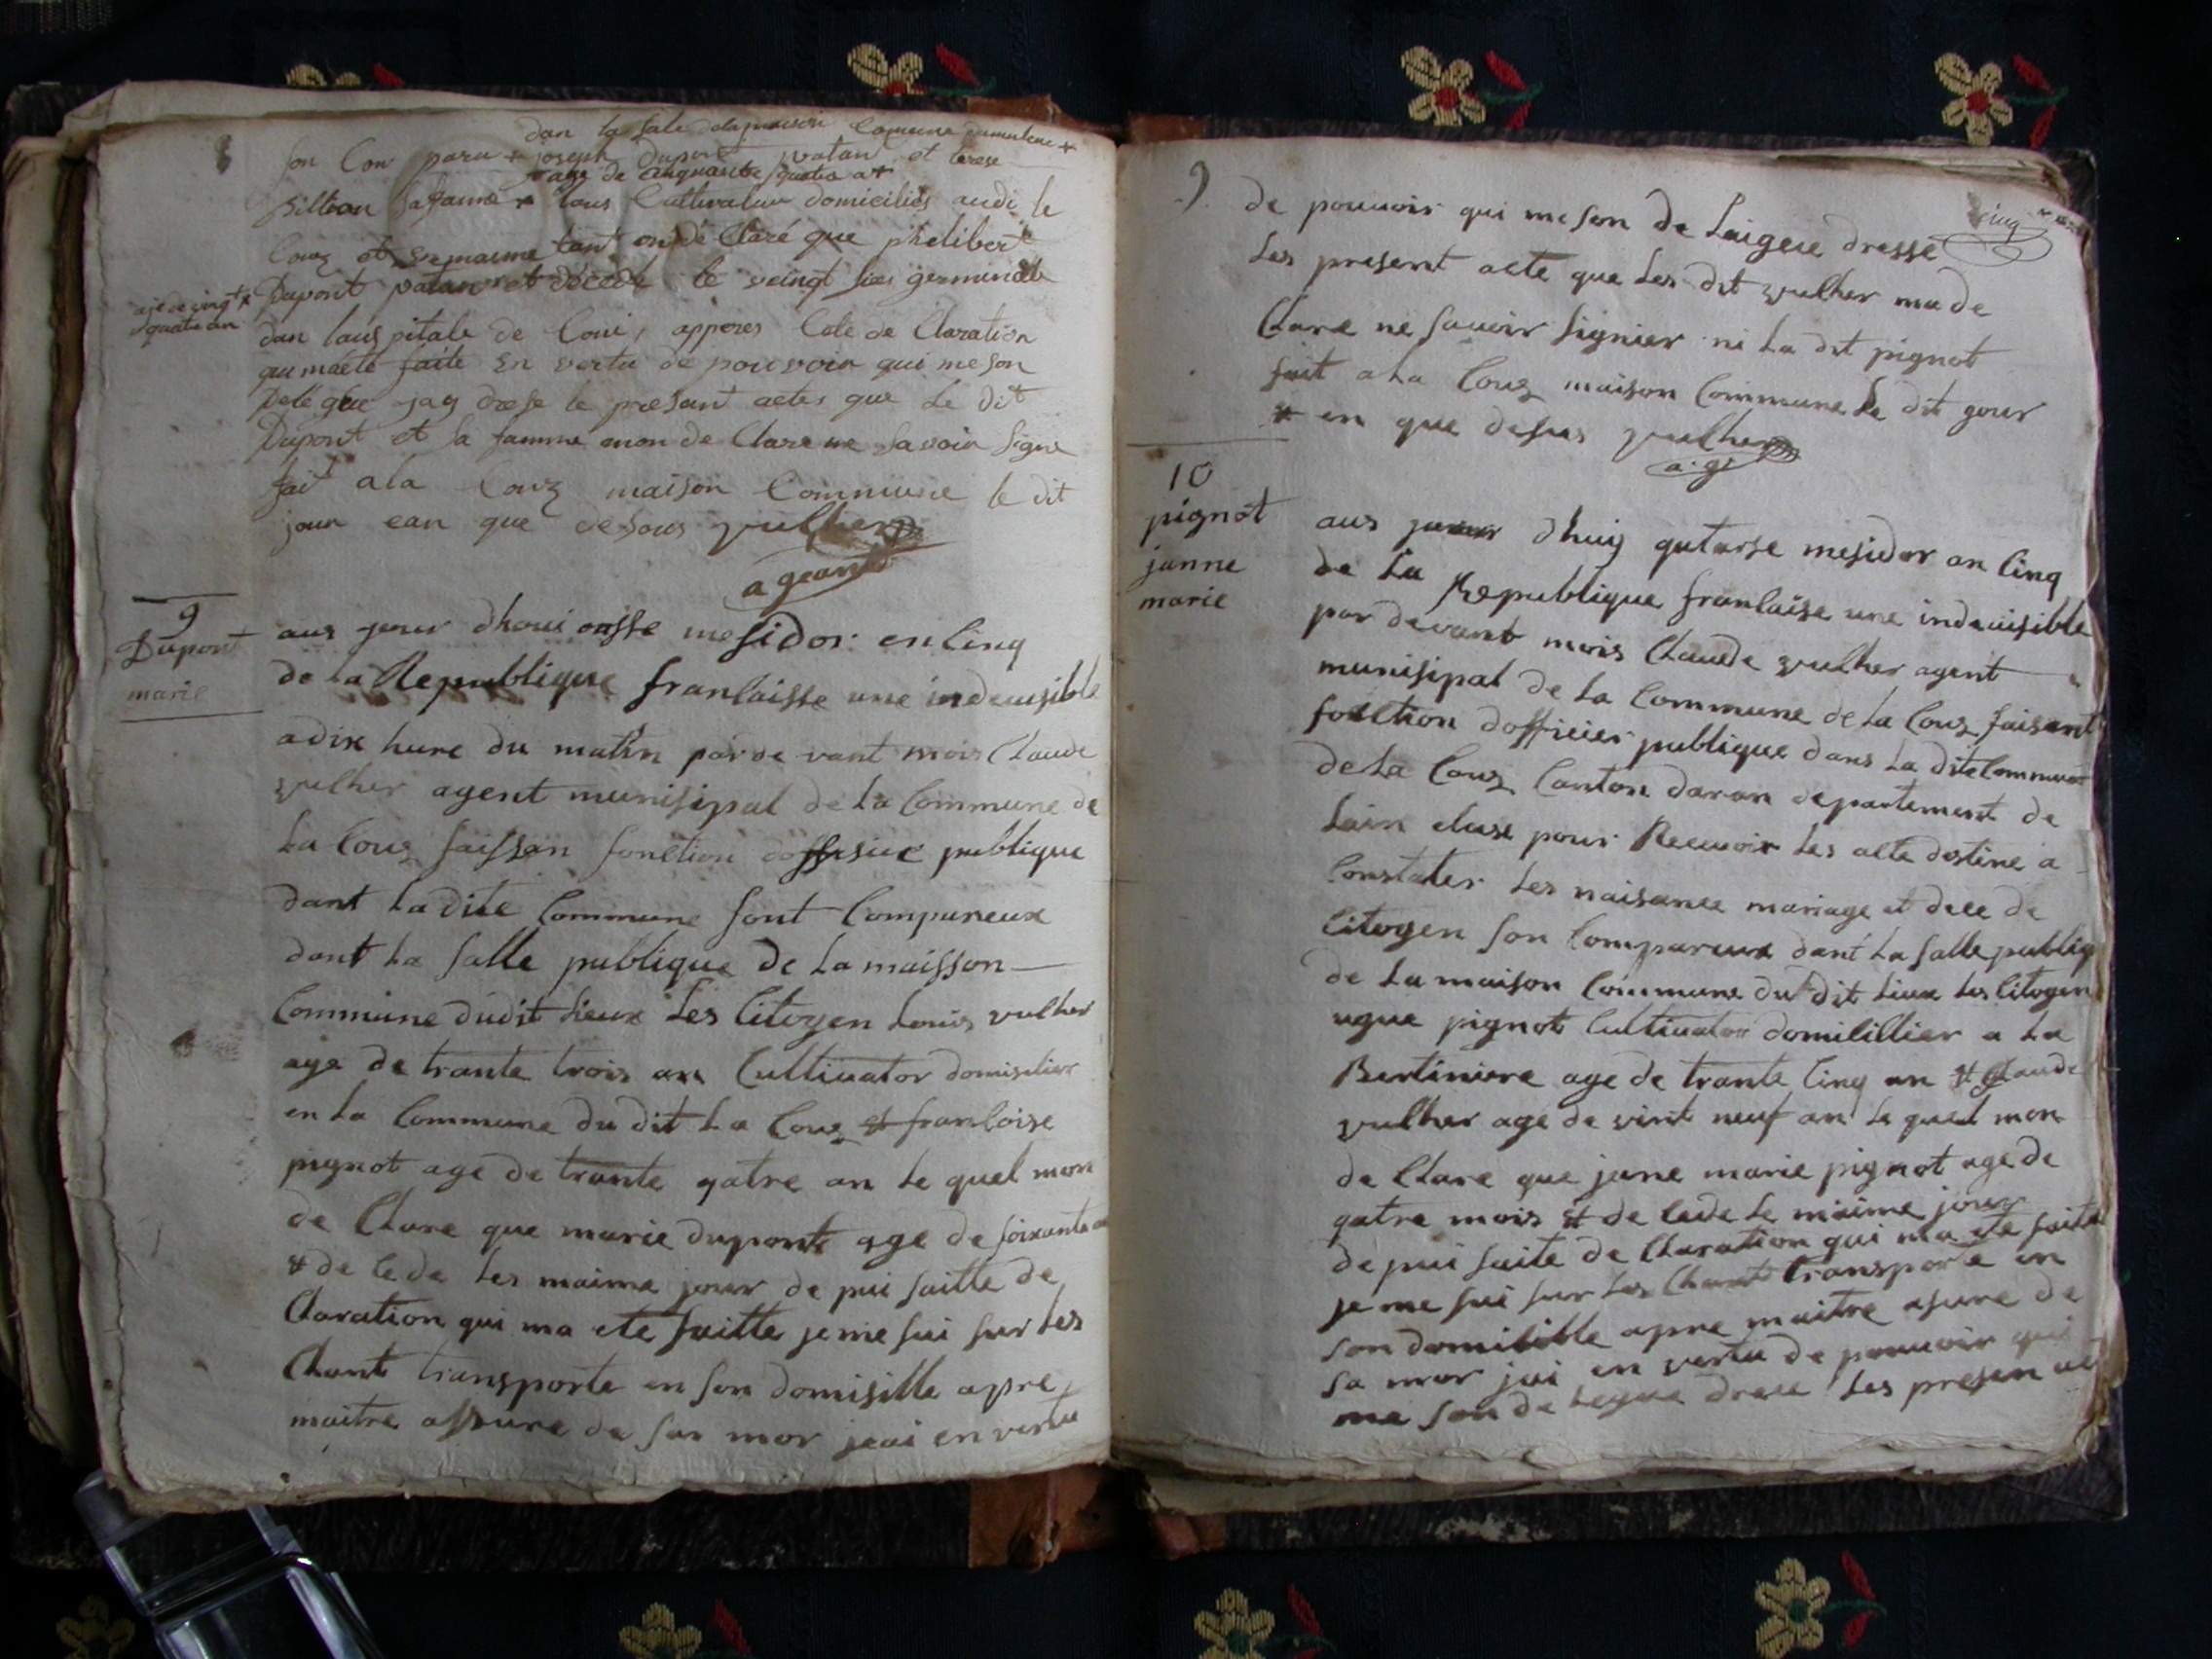 dan la sale de la maison Comune
son Con paru + joseph Dupont vatan et terese
+ age de cinquante quatre a+
pilleon sa famme + tous Cultivateur domiciliés audi le
Couz et en maime tant on dé Claré que phelibert
Dupont vatan et décédé le veingt sies germinale
age de cinq +x
quatre an
dan laus pitale de Coni, appores Cele de Claration
qui maeté faite en vertu de pouvoir qui me son
Delégue jay drese le presant actes que Le dit
Dupont et sa famme mon de Clare ne savoir signe
fait a la Couz maison Commune le dit
jour ean que desous vulher
agean
9
Dupont
marie
aus jour dhoui onsse mesidor en Cinq
de La Republique franCaisse une indeuisible
a dix hure du matin par de vant mois Claude
vulher agent munisipal de La Commune de
La Couz faissan fonction doffisier publique
dant La dite Commune sont Compareux
dant La salle publique de La maisson
Commune dudit Lieux Les Citoyen Louis vulher
age de trante trois an Cultiuator domisilier
en La Commune du dit La Couz et franCoise
pignot age de trante gatre an Le quel mon
de Clare que marie dupont age de soixante an
et de Cede Les maime jour de pui saitte de
Claration qui ma ete faitte je me sui sur Les
Chant transporte en son domisille apre
maitre assure de sar mor jeai en vertu
9. de pouuoir qui me son de Laigue dressé
Les present acte que Les dit vulher ma de
Clare ne sauoir signier ni La dit pignot
fait a La Couz maison Commune Le dit gour
et en que desus vulher
a.g.
10
pignot
janne
marie
aus jour dhuig gatorse mesidor an Cinq
de La Republique franCaise une indeuisible
par devant mois Claude vulher agent
munisipal de La Commune de La Couz faisant
fonction dofficier publique dans La dite Commune
de La Couz Canton daran departement de
Lain eluse pour Receuoir Les acte destine a
Constater Les naisance mariage et dece de
Citoyen son Compareux dant La salle publiq
de La maison Commune du dit Lieux Les Citoyen
ugue pignot Cultiuator domiCillier a La
Bertiniere age de trante Cinq an et Claude
vulher age de vint neuf an Le quel mon
de Clare que jane marie pignot age de
gatre mois et de Cede Le maime jour
de pui saite de Claration qui ma ete faite
je me sui sur Les Chant transporte en
son domiCille apre maitre asure de
sa mor jai en vertu de pouuoir qui
me son de Legue drece Les presen ac